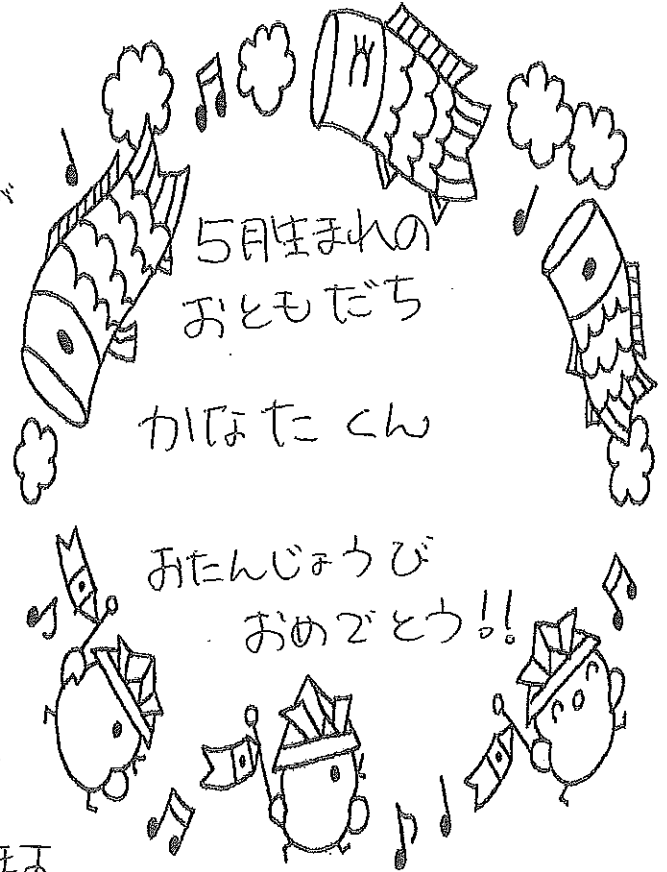 5月生まれの
おともだち
かなた くん
おたんじょうび
おめでとう!!